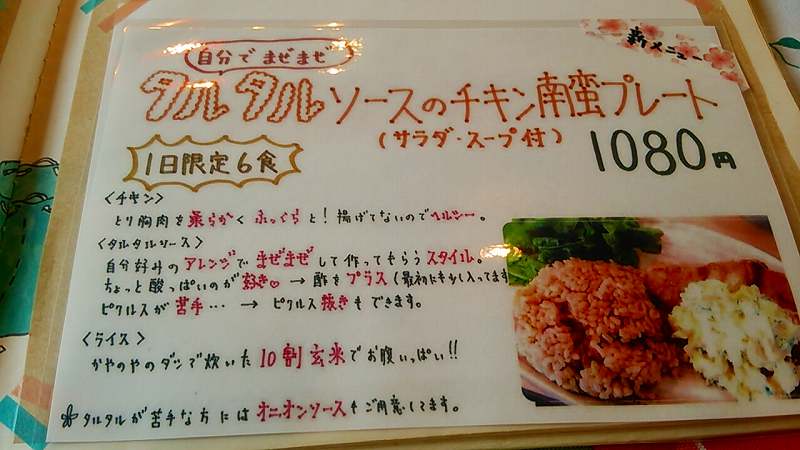 新メニュー
自分でまぜまぜ
タルタルソースのチキン南蛮プレート
(サラダ・スープ付)
1080円
1日限定6食
<チキン>
とり胸肉を柔らかくふっくらと!揚げてないのでヘルシー。
<タルタルソース>
自分好みのアレンジでまぜまぜして作ってもらうスタイル。
ちょっと酸っぱいのが好き♡→酢をプラス(最初にも少し入ってます
ピクルスが苦手…→ピクルス抜きもできます。
<ライス>
かやのやのダシで炊いた10割玄米でお腹いっぱい!!
タルタルが苦手な方にはオニオンソースもご用意してます。